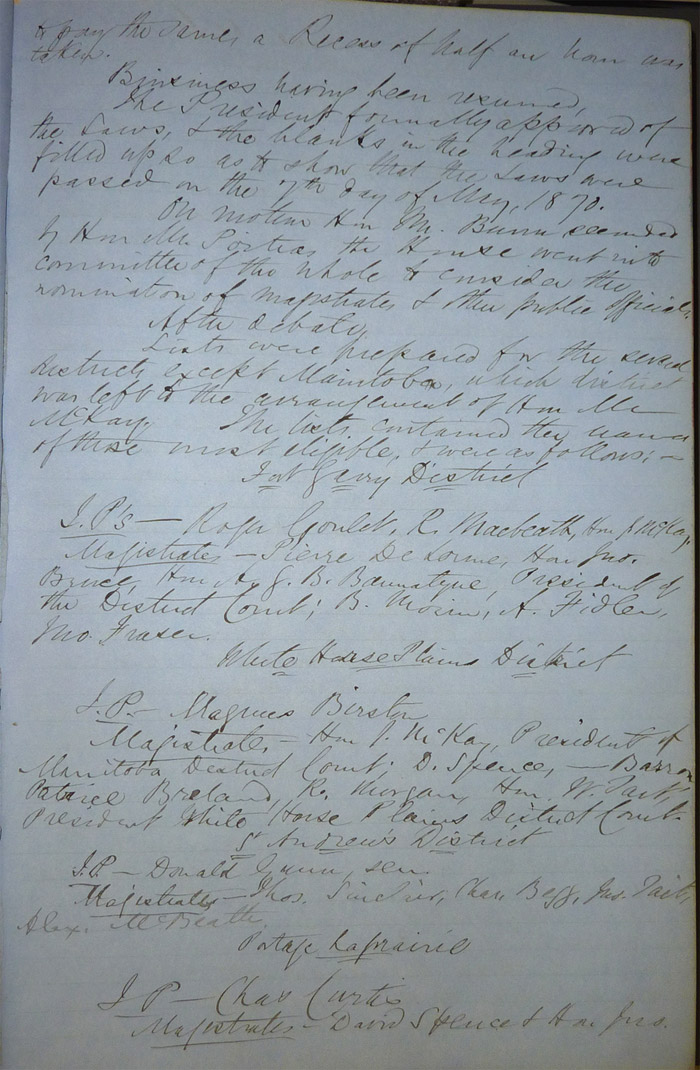 & pay the same, a Recess of half an hour was
taken.
Business having been resumed,
The President formally approved of
the Laws, & the blanks in the heading were
filled up so as to show that the Laws were
passed on the 7th day of May, 1870.
On motion Hon Mr. Bunn seconded
by Hon Mr. Poitras, the House went into
committee of the whole to consider the
nomination of magistrates & other public officials.
After debate,
Lists were prepared for the several
districts except Manitoba, which district
was left to the arrangement of Hon Mr
McKay. The lists contained the names
of those most eligible, & were as follows:—
Fort Garry District
J.P's — Roger Goulet, R. Macbeath, Hon J. McKay,
Magistrates — Pierre De Lorme, Hon Jno.
Bruce, Hon A. G. B. Bannatyne, President of
the District Court; B. Morin, A. Fidler,
Jno. Fraser.
White Horse Plains District
J.P. — Magnus Birston
Magistrates — Hon J. McKay, President of
Manitoba District Court. D. Spence, —
Patrice Breland, R. Morgan, Hon. W. Tait,
President White Horse Plains District Court
St Andrew's District
J.P. — Donald Gunn, sen.
Magistrates — Thos. Sinclair, Chas. Begg, Jas. Tait,
Alex. McBeath
Portage Laprairie
J P — Chas Curtis
Magistrates — David Spence & Hon Jno.